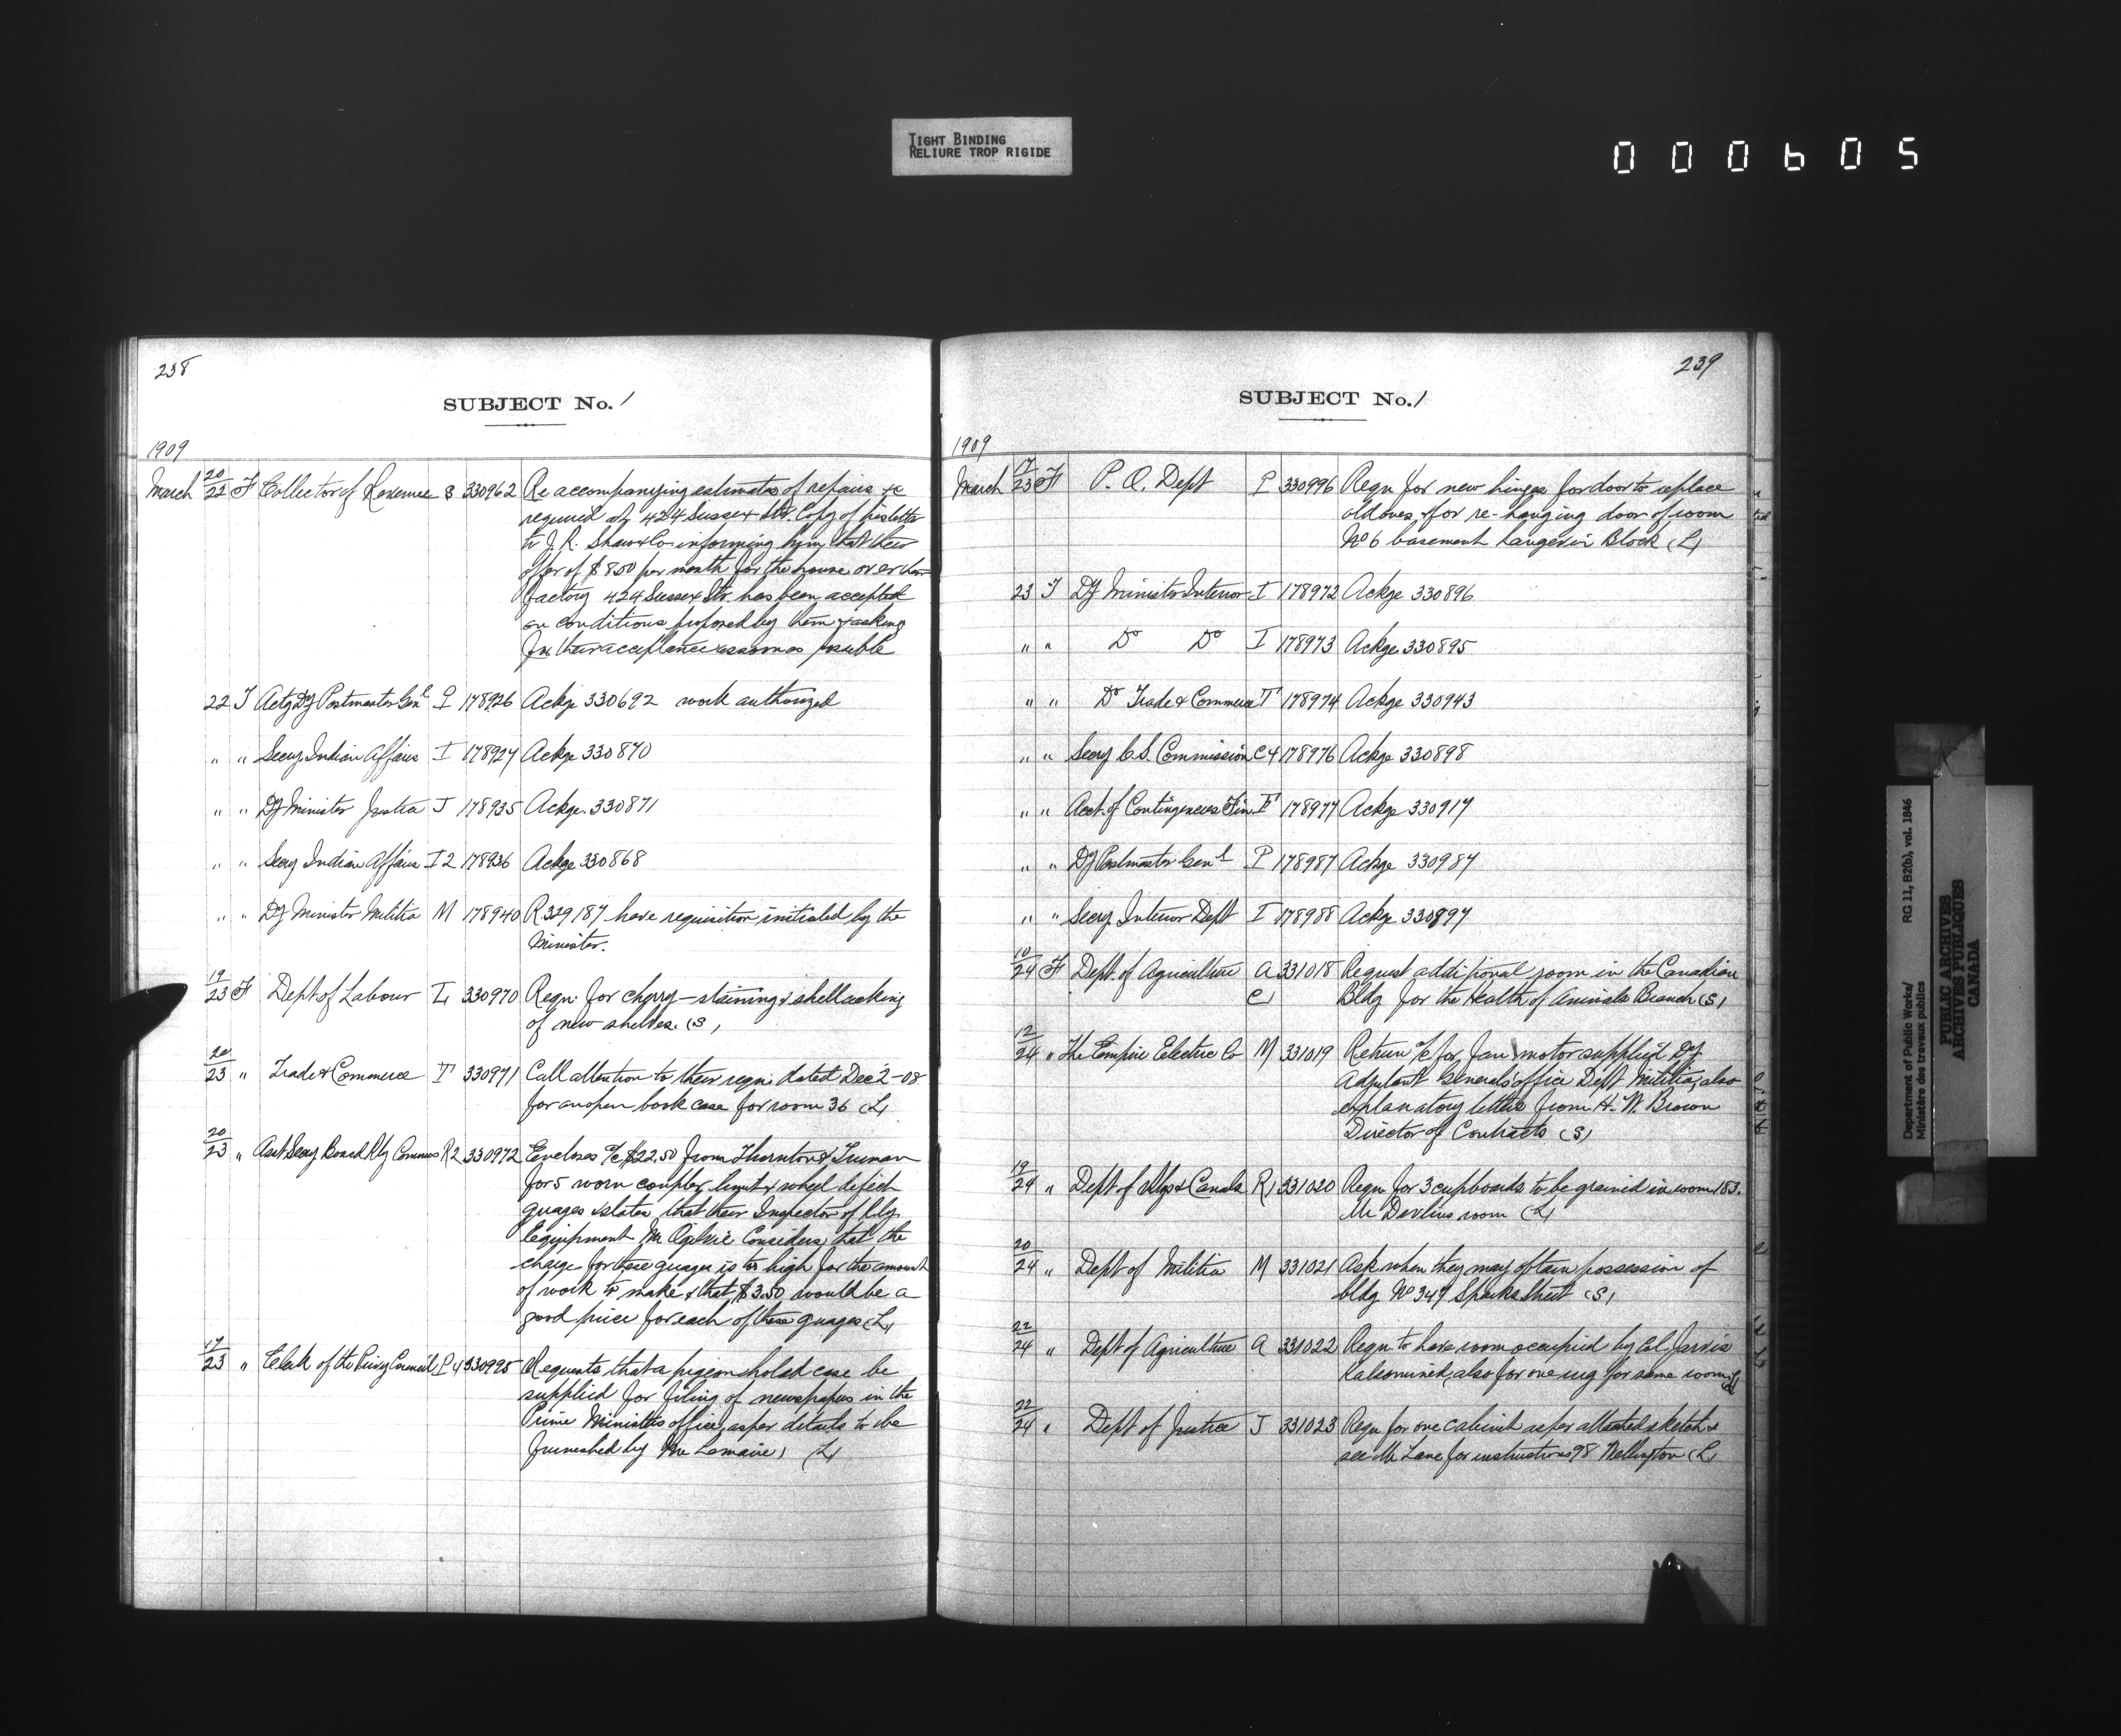 TIGHT BINDING
RELIURE TROP RIGIDE
000605
238
SUBJECT No. 1
1909
March 20/22 F Collector of Revenue S 330962 Re accompanying estimates of repairs &c
required at 424 Sussex Str. Copy of his letter
to J. R. Shaw & Co. informing him that their
offer of $8.50 per month for the house over
factory 424 Sussex Str. has been accepted
on conditions proposed by them & asking
for their acceptance as soon as possible
22 T Actg Dy Postmaster Genl P 178926 Ackge 330692 work authorized
" " Secy Indian Affairs I 178927 Ackge 330870
" " Dy Minister Justice J 178935 Ackge. 330871
" " Secy Indian Affairs I 2 178936 Ackge 330868
" " Dy Minister Militia M 178940 R 329187 have requisition initialed by the
Minister.
19/23 F Dept of Labour L 330970 Reqn. for cherry-staining & shellacking
of new shelves. (S)
20/23 " Trade & Commerce T 330971 Call attention to their reqn. dated Dec 2-08
for an open book case for room 36 (L)
20/23 " Asst Secy Board Rly Commrs R2 330972 Encloses a/c $22.50 from Thornton & Truman
for 5 worn coupler, limit & wheel defect
guages & states that their Inspector of Rly.
Equipment Mr Ogilvie Considers that the
charge for these guages is too high for the amount
of work to make & that $3.50 would be a
good price for each of these guages (L)
17/23 " Clerk of the Privy Council P4 330995 Requests that a pigeon holed case be
supplied for filing of newspapers in the
Prime Ministers office, as per details to be
furnished by Mr Lemaire, (L)
239
SUBJECT No. 1
1909
March 17/23 F P. O. Dept P 330996 Reqn for new hinges for door to replace
old ones, & for re-hanging door of room
No 6 basement Langevin Block (L)
23 T Dy Minister Interior I 178972 Ackge 330896
" " Do Do I 178973 Ackge 330895
" " Do Trade & Commerce T 178974 Ackge 330943
" " Secy C.S. Commission C4 178976 Ackge 330898
" " Acct. of Contingencies Fin. F 178977 Ackge 330917
" " Dy Postmaster Genl P 178987 Ackge 330984
" " Secy. Interior Dept I 178988 Ackge 330897
10/24 F Dept. of Agriculture A 331018 Request additional room in the Canadian
C Bldg for the Health of Animals Branch (S)
12/24 " The Empire Electric Co M 331019 Return a/c for fan motor supplied Dy
Adjutant General's office Dept Militia, also
explanatory letter from H. W. Brown
Director of Contracts (S)
19/24 " Dept of Rlys & Canals R 331020 Reqn for 3 cupboards to be grained in room 183.
Mr Devlins room (L)
20/24 " Dept of Militia M 331021 Ask when they may obtain possession of
bldg No 347 Sparks Street (S)
22/24 " Dept of Agriculture A 331022 Reqn to have room occupied by Col. Jarvis
Kalsomined, also for one rug for same room (L)
22/24 " Dept of Justice J 331023 Reqn for one cabinet as per attached sketch &
see Mr Lane for instructions 98 Wellington (L)
Department of Public Works/ RG 11, B2(b), vol. 1846
Ministère des travaux publics
PUBLIC ARCHIVES
ARCHIVES PUBLIQUES
CANADA